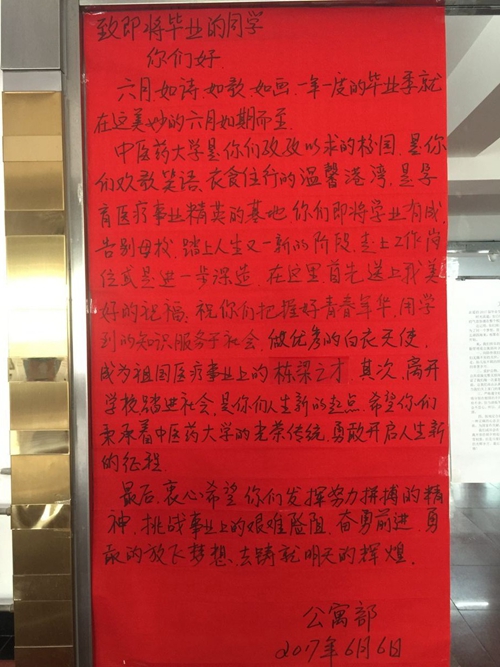 致即将毕业的同学
你们好.
六月如诗、如歌、如画、一年一度的毕业季就
在这美妙的六月如期而至.
中医药大学是你们孜孜以求的校园,是你
们欢歌笑语、衣食住行的温馨港湾,是孕
育医疗事业精英的基地.你们即将学业有成,
告别母校,踏上人生又一新的阶段,走上工作岗
位或是进一步深造.在这里首先送上我美
好的祝福,祝你们把握好青春年华,用学
到的知识服务于社会,做优秀的白衣天使,
成为祖国医疗事业上的栋梁之才.其次,离开
学校踏进社会,是你们人生新的起点,希望你们
秉承着中医药大学的光荣传统,勇敢开启人生新
的征程.
最后,衷心希望你们发挥努力拼搏的精
神,挑战事业上的艰难险阻,奋勇前进,勇
敢的放飞梦想,去铸就明天的辉煌.
公寓部
2017年6月6日